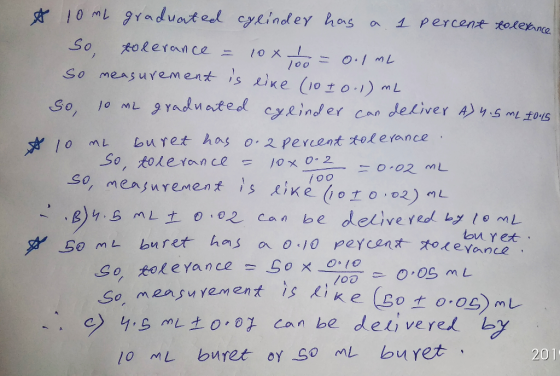 ☆ 10 mL graduated cylinder has a 1 percent tolerance
So, tolerance = 10 × 1/100 = 0.1 mL
So measurement is like (10 ± 0.1) mL
So, 10 mL graduated cylinder can deliver A) 4.5 mL ±
☆ 10 mL buret has 0.2 percent tolerance.
So, tolerance = 10 × 0.2/100 = 0.02 mL
So, measurement is like (10 ± 0.02) mL
∴ .B) 4.5 mL ± 0.02 can be delivered by 10 mL
buret.
☆ 50 mL buret has a 0.10 percent tolerance.
So, tolerance = 50 × 0.10/100 = 0.05 mL
So, measurement is like (50 ± 0.05) mL
∴ C) 4.5 mL ± 0.07 can be delivered by
10 mL buret or 50 mL buret.
201